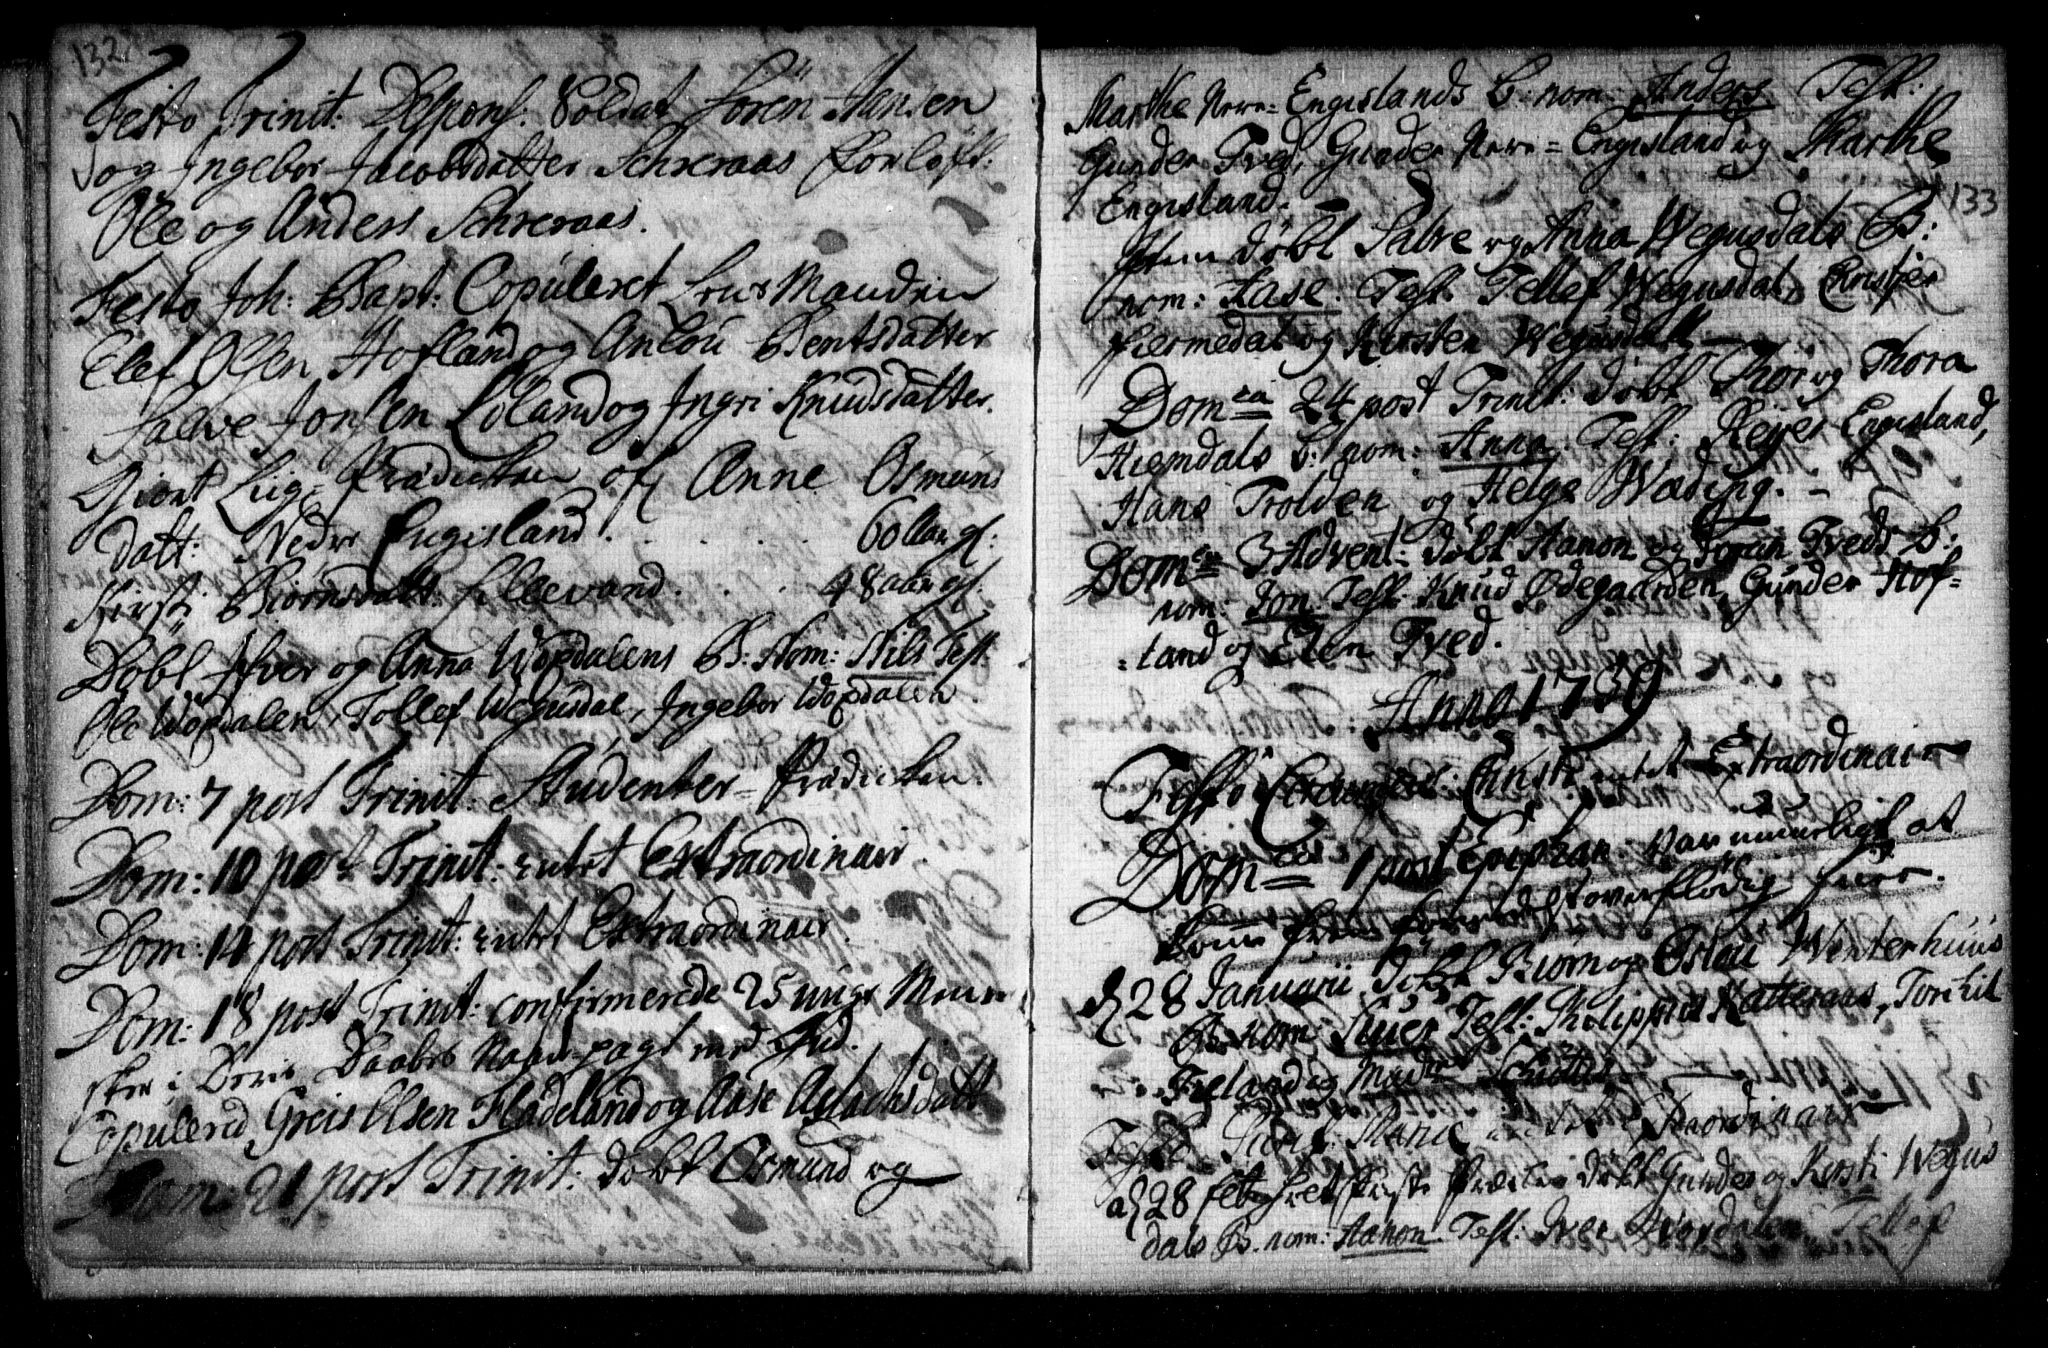 132
Festo Trinit: Despons: Soldat Sören Hansen
og Ingebor Jacobsdatter Schreraas Forlöft:
Ole og Anders Schreraas.
Festo Joh: Bapt: Copuleret
Elef Olsen Hofland og Anlou Bentsdatter
Salve Jonsen Löland og Jngri Knudsdatter.
Giort Liig-Prædicken of Anne Osmuns
datt: Nedre Engisland . . . . . 60 aar gl:
Kirsti Biörnsdatt: Ellevand . . . 48 aar gl.
Döbt Ifver og Anna Wopdalens B: Nom: Nils Test:
Ole Wopdalen, Tollef Wegusdal, Ingebor Wopdalen.
Dom: 7 post Trinit: Studenter-Prædicken.
Dom: 10 post Trinit: Extraordinair.
Dom: 14 post Trinit: Extraordinair.
Dom: 18 post Trinit: confirmerede 25 unge Menne
sker i Deris Daabes Naade-pagt med Gud.
Copulered Greis Olsen Fladeland og Aase Aslachsdatt
Dom: 21 post Trinit: döbt Osmund og
133
Marthe Nere-Engislands B: nom: Anders Test:
Gunder Tved, Gunder Nere-Engisland og Marthe
Engisland.
Item döbt Salve og Anna Wegusdals B:
nom: Aase. Test: Tellef Wegusdal, Christjer
Hiermedal og Kirsten Wegusdall
Domca 24 post Trinit: döbt Thor og Thora
Hiemdals B: nom: Anna. Test: Reijer Engisland,
Hans Trolden og Helge Wæding.
Domca 3 Advent: döbt Aanon og Joran Tveds B:
nom: Jon. Test: Knud Ødegaarden, Gunder Hof=
=land og Elen Tved.
Anno 1739
Festo Circumcis: Christi Extraordinair
Domca 1 post Epiphan: at
overflödig
d 28 Januarii döbt Biörn og Aslau Winterhuus
B: nom: Siver Test: Philippus Katteraas, Torkil
Freland og
Festo Purif: Mariæ Extraordinair
d 28 Feb: döbt Gunder og Kirsti Wegus
dals B. nom: Aanon. Test: Iver Wopdalen, Tellef